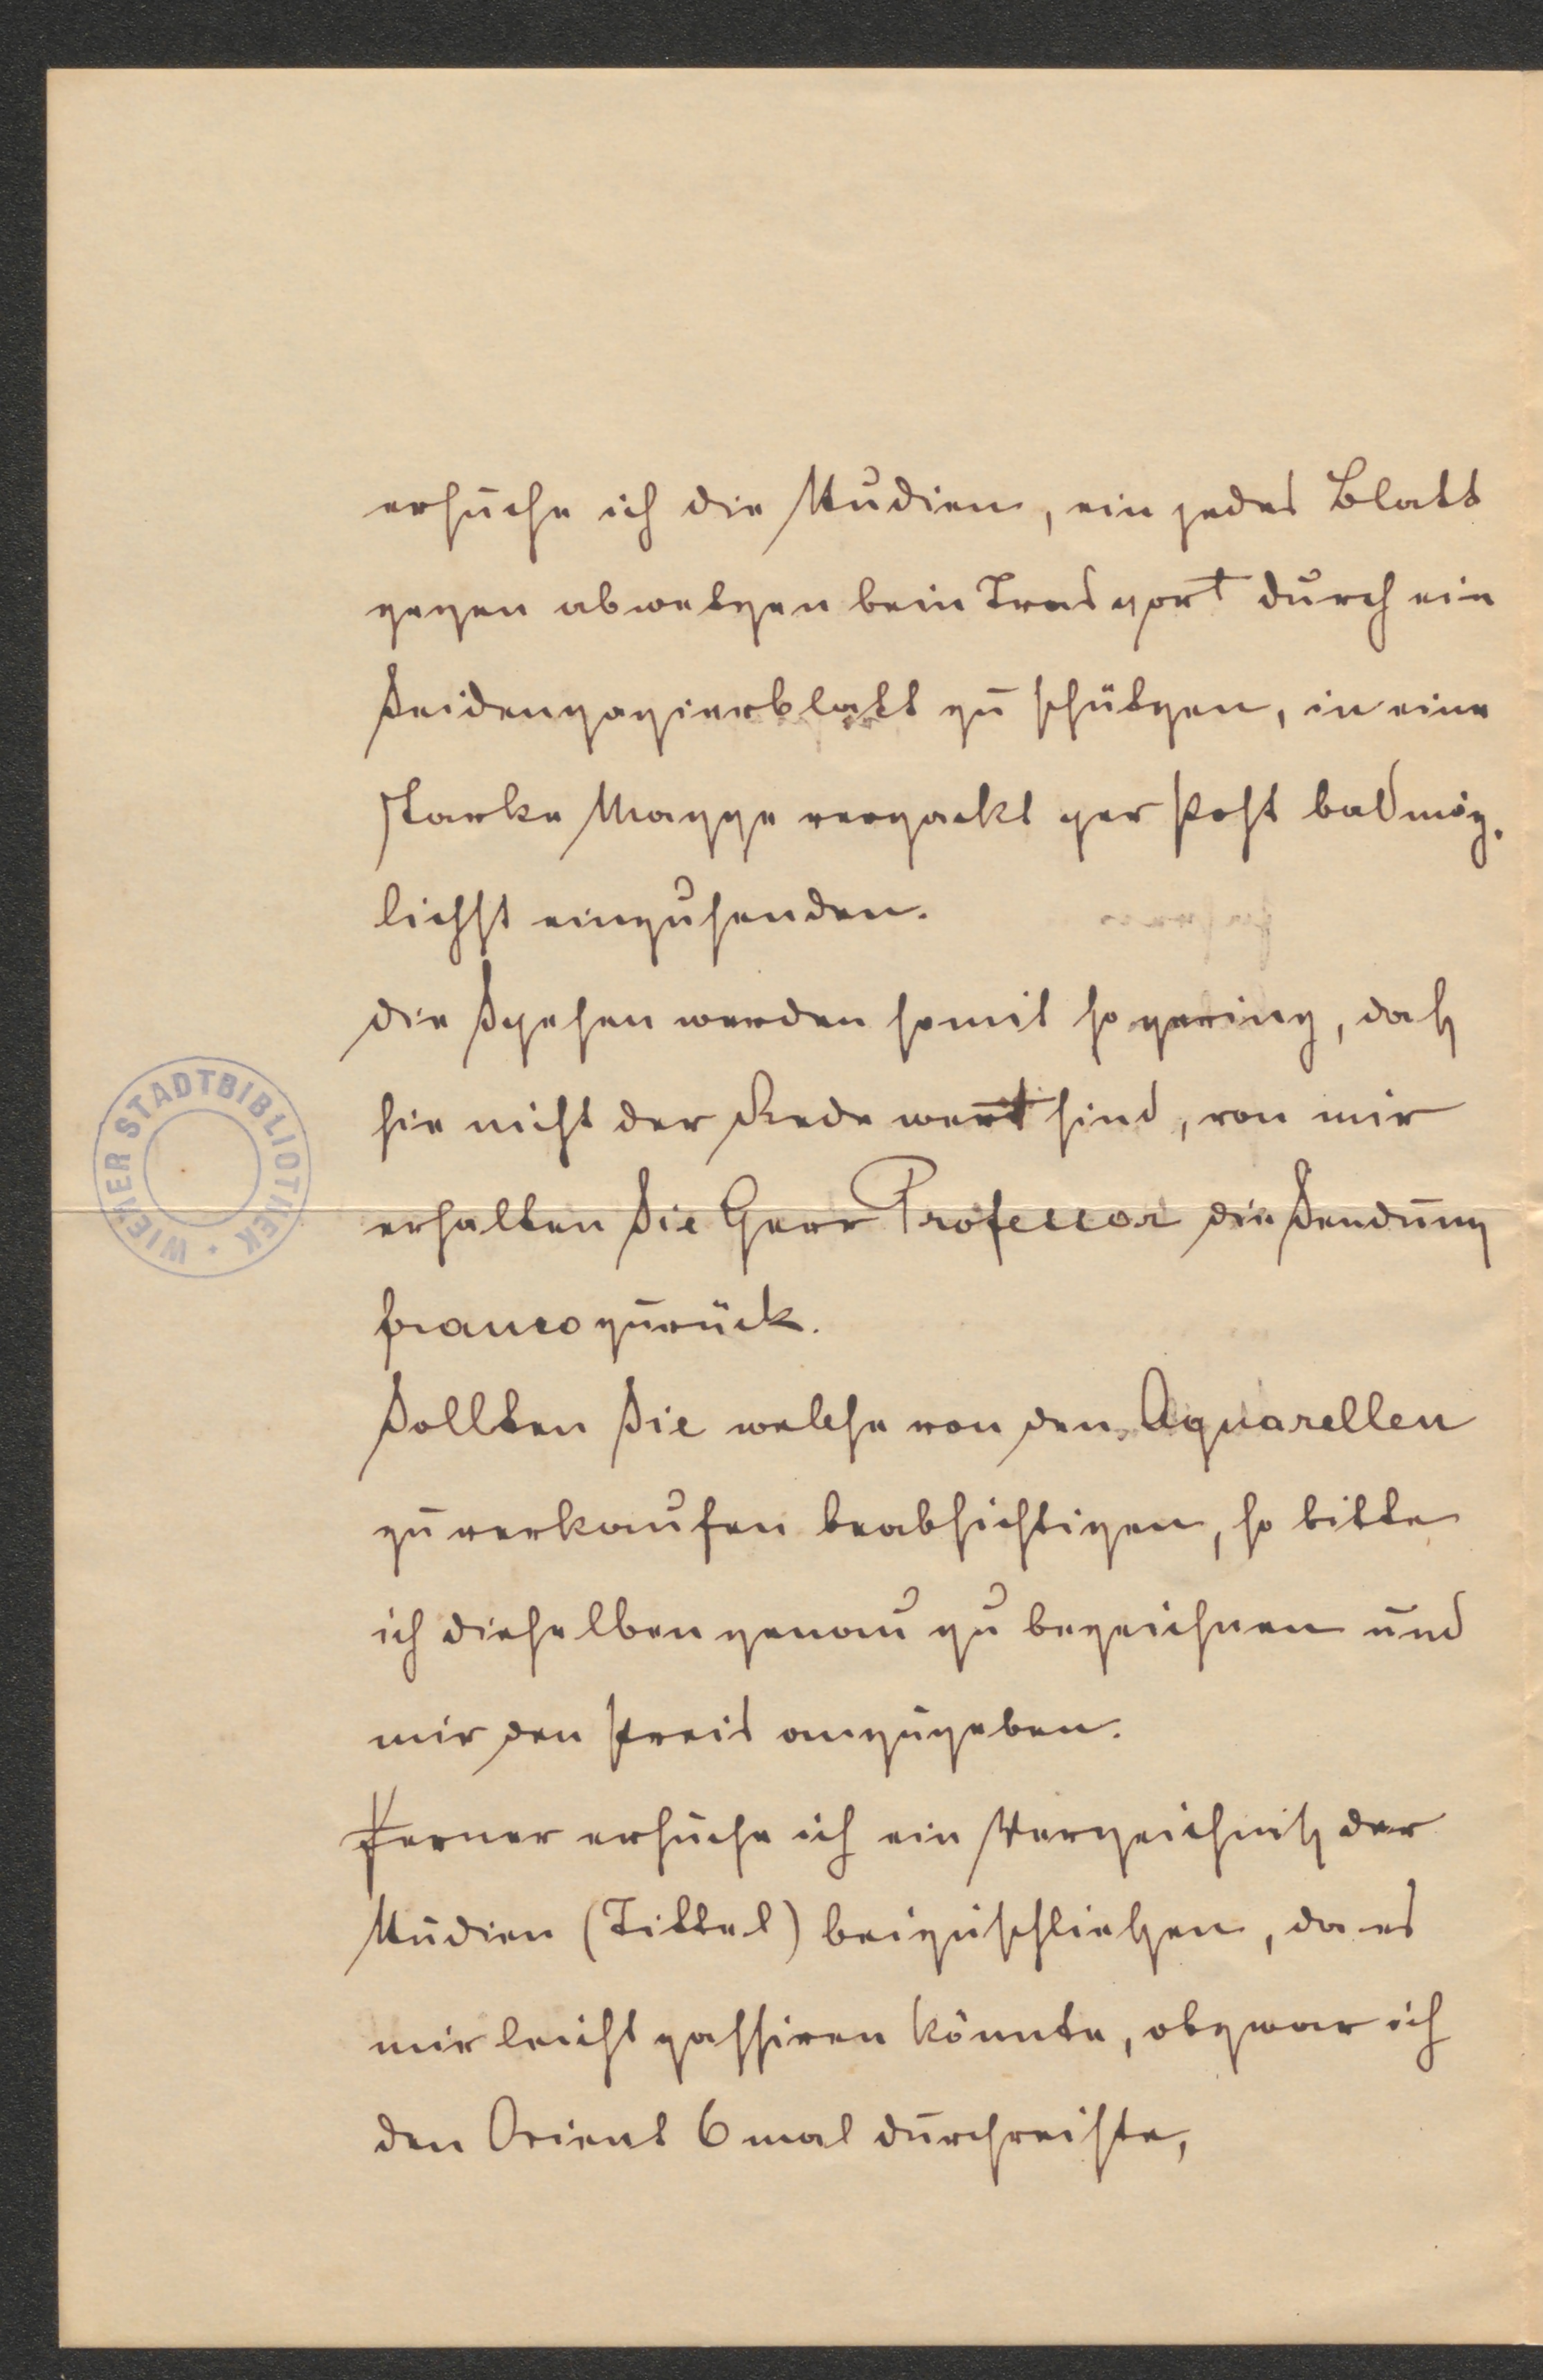 ersuche ich die Studien, ein jedes Blatt
gegen abwetzen beim Trasport durch ein
Seidenpapierblatt zu schützen, in eine
starke Mappe verpackt per Post baldmög-
lichst einzusenden.
die Spesen werden somit so gering, daß
sie nicht der Rede wert sind, von mir
erhalten Sie Herr Professor die Sendung
franco zurück.
Sollten Sie welche von den Aquarellen
zu verkaufen beabsichtigen, so bitte
ich dieselben genau zu bezeichnen und
mir den Preis anzugeben.
Ferner ersuche ich ein Verzeichniß der
Studien (Tittel) beizuschließen, da es
mir leicht passiren könnte, obzwar ich
den Orient 6 mal durchreiste,
WIENER STADTBIBLIOTHEK